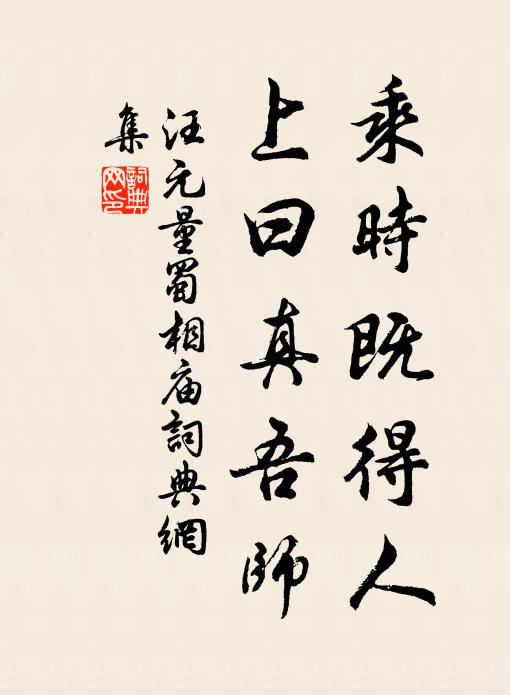 乘時既得人
上曰真吾師
汪元量蜀相庙詞典網
集
詞典网印